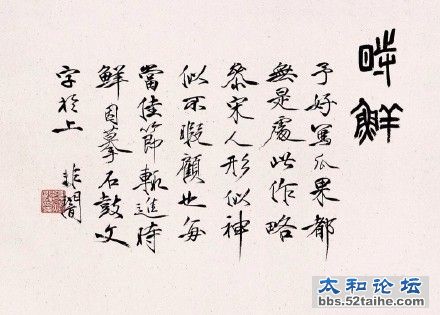 時鮮
予好寫瓜果都
無是處此作略
叅宋人形似神
似不暇顧也每
當佳節輒進時
鮮因摹石鼓文
字於上
非闇
太和论坛
bbs.52taihe.com